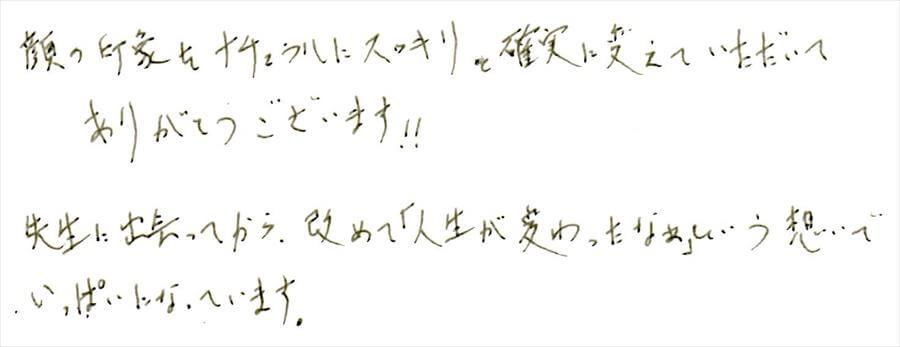 顔の印象をナチュラルにスッキリと確実に変えていただいて
ありがとうございます!!
先生に出会ってから、改めて「人生が変わったなぁ」という想いで
いっぱいになっています。